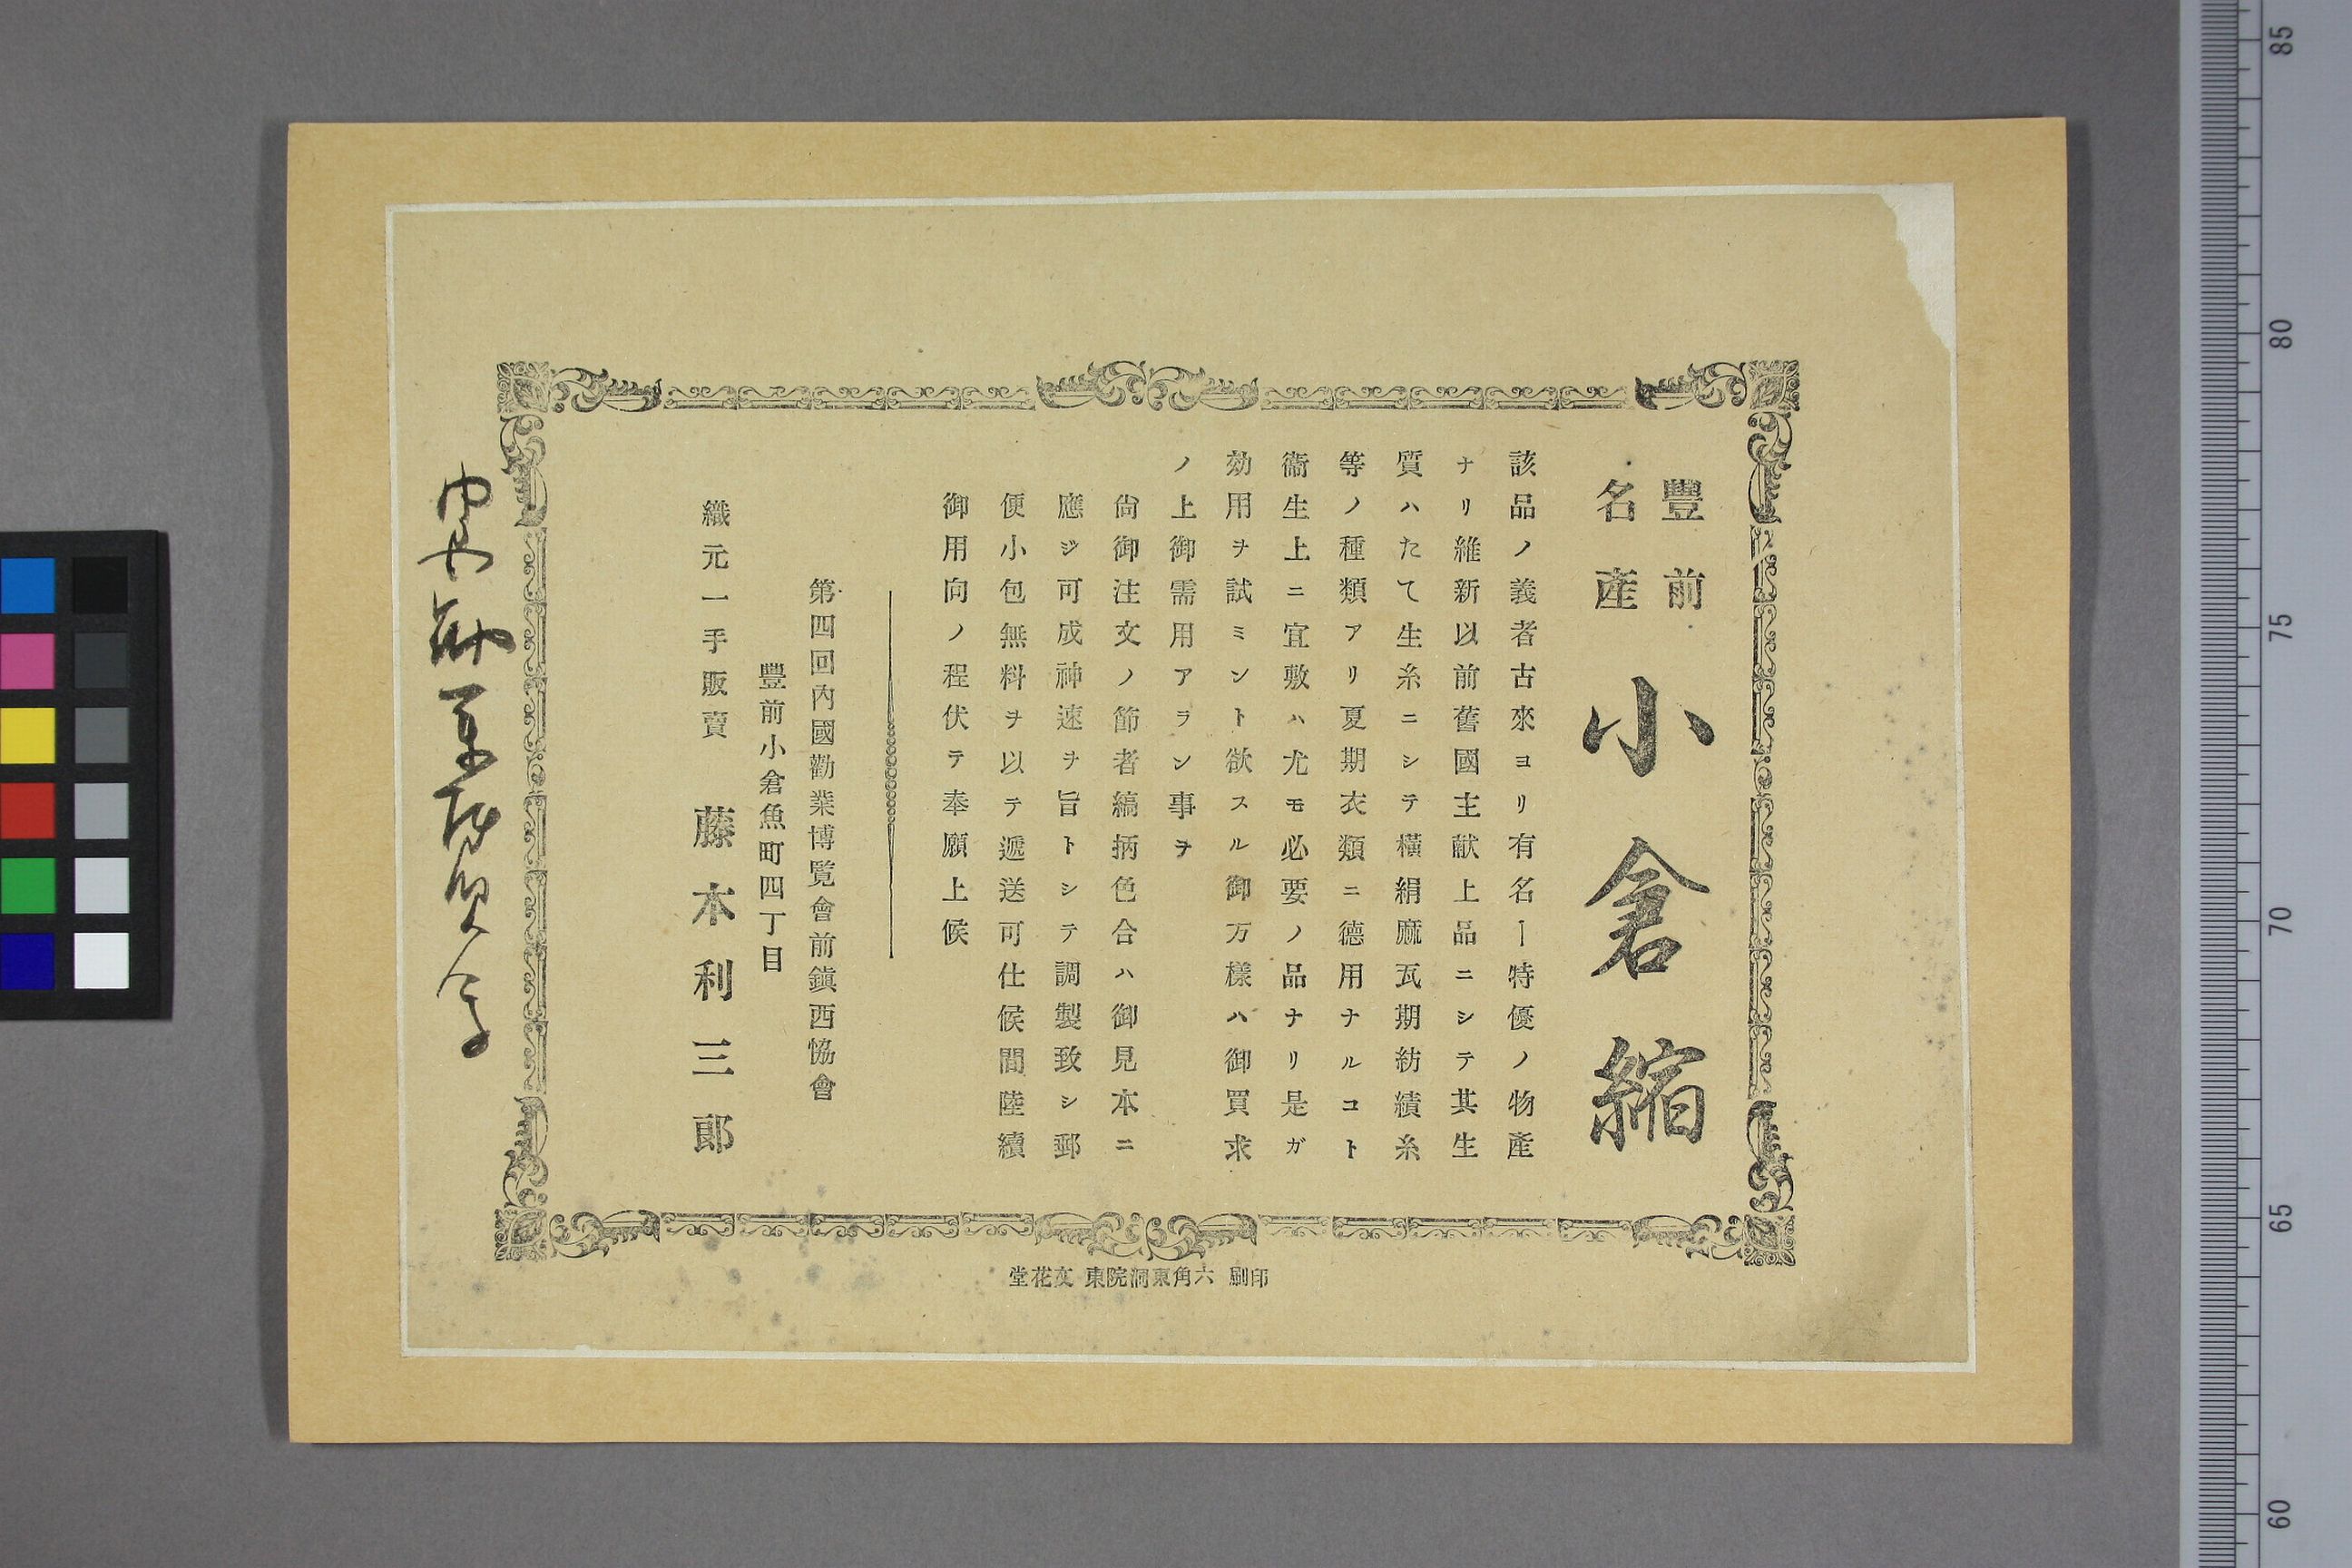 豐前
名產
小倉縮
該品ノ義者古來ヨリ有名ー特優ノ物產
ナリ維新以前舊國主献上品ニシテ其生
質ハたて生糸ニシテ橫絹麻瓦期紡績糸
等ノ種類アリ夏期衣類ニ德用ナルコト
衞生上ニ宜敷ハ尤モ必要ノ品ナリ是ガ
効用ヲ試ミント欲スル御万樣ハ御買求
ノ上御需用アラン事ヲ
尙御注文ノ節者縞柄色合ハ御見本ニ
應ジ可成神速ヲ旨トシテ調製致シ郵
便小包無料ヲ以テ遞送可仕候間陸續
御用向ノ程伏テ奉願上候
第四回內國勸業博覧會前鎭西恊會
豐前小倉魚町四丁目
織元一手販賣 藤本利三郞
印刷 六角東洞院東 文花堂
85
80
75
70
65
60